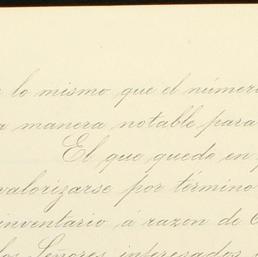 lo mismo que el númer
manera notable para
El que quede en
valorizarse por término
inventario á razon de
los Señores interesados